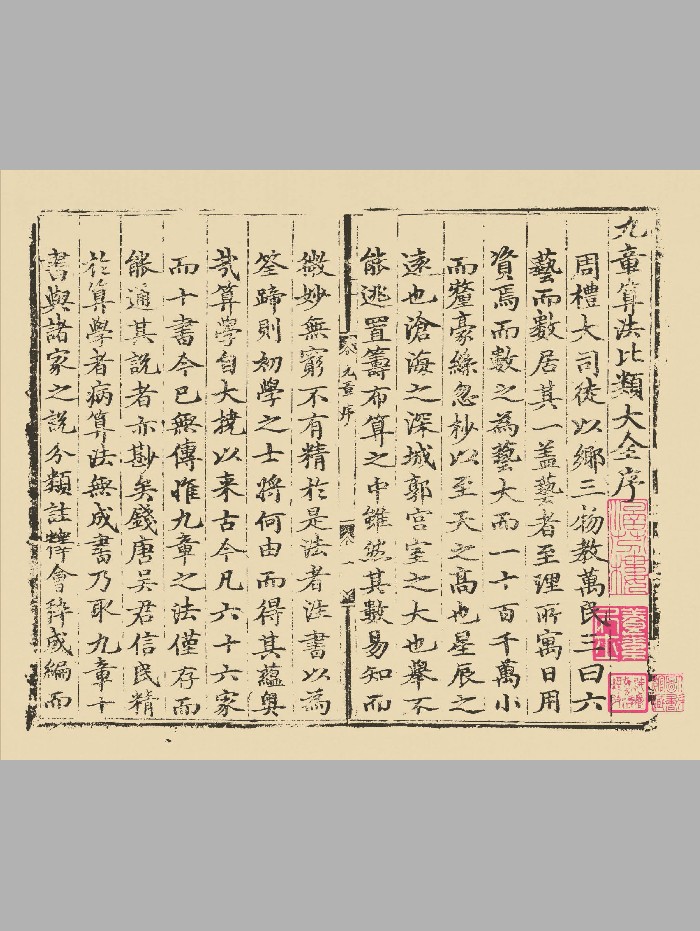 九章算法比類大全序
周禮大司徒以鄉三物教萬民三曰六
藝而數居其一盖藝者至理所寓日用
資焉而數之為藝大而一十百千萬小
而釐豪絲忽杪以至天之高也星辰之
遠也滄海之深城郭宫室之大也舉不
能逃置籌布算之中雖然其數易知而
九章序
微妙無窮不有精於是法者注書以為
筌蹄則初學之士將何由而得其蘊奥
哉算學自大撓以来古今凡六十六家
而十書今已無傳惟九章之法僅存而
能通其説者亦尠矣錢唐吴君信民精
於算學者病算法無成書乃取九章十
書與諸家之説分類註釋會稡成編而